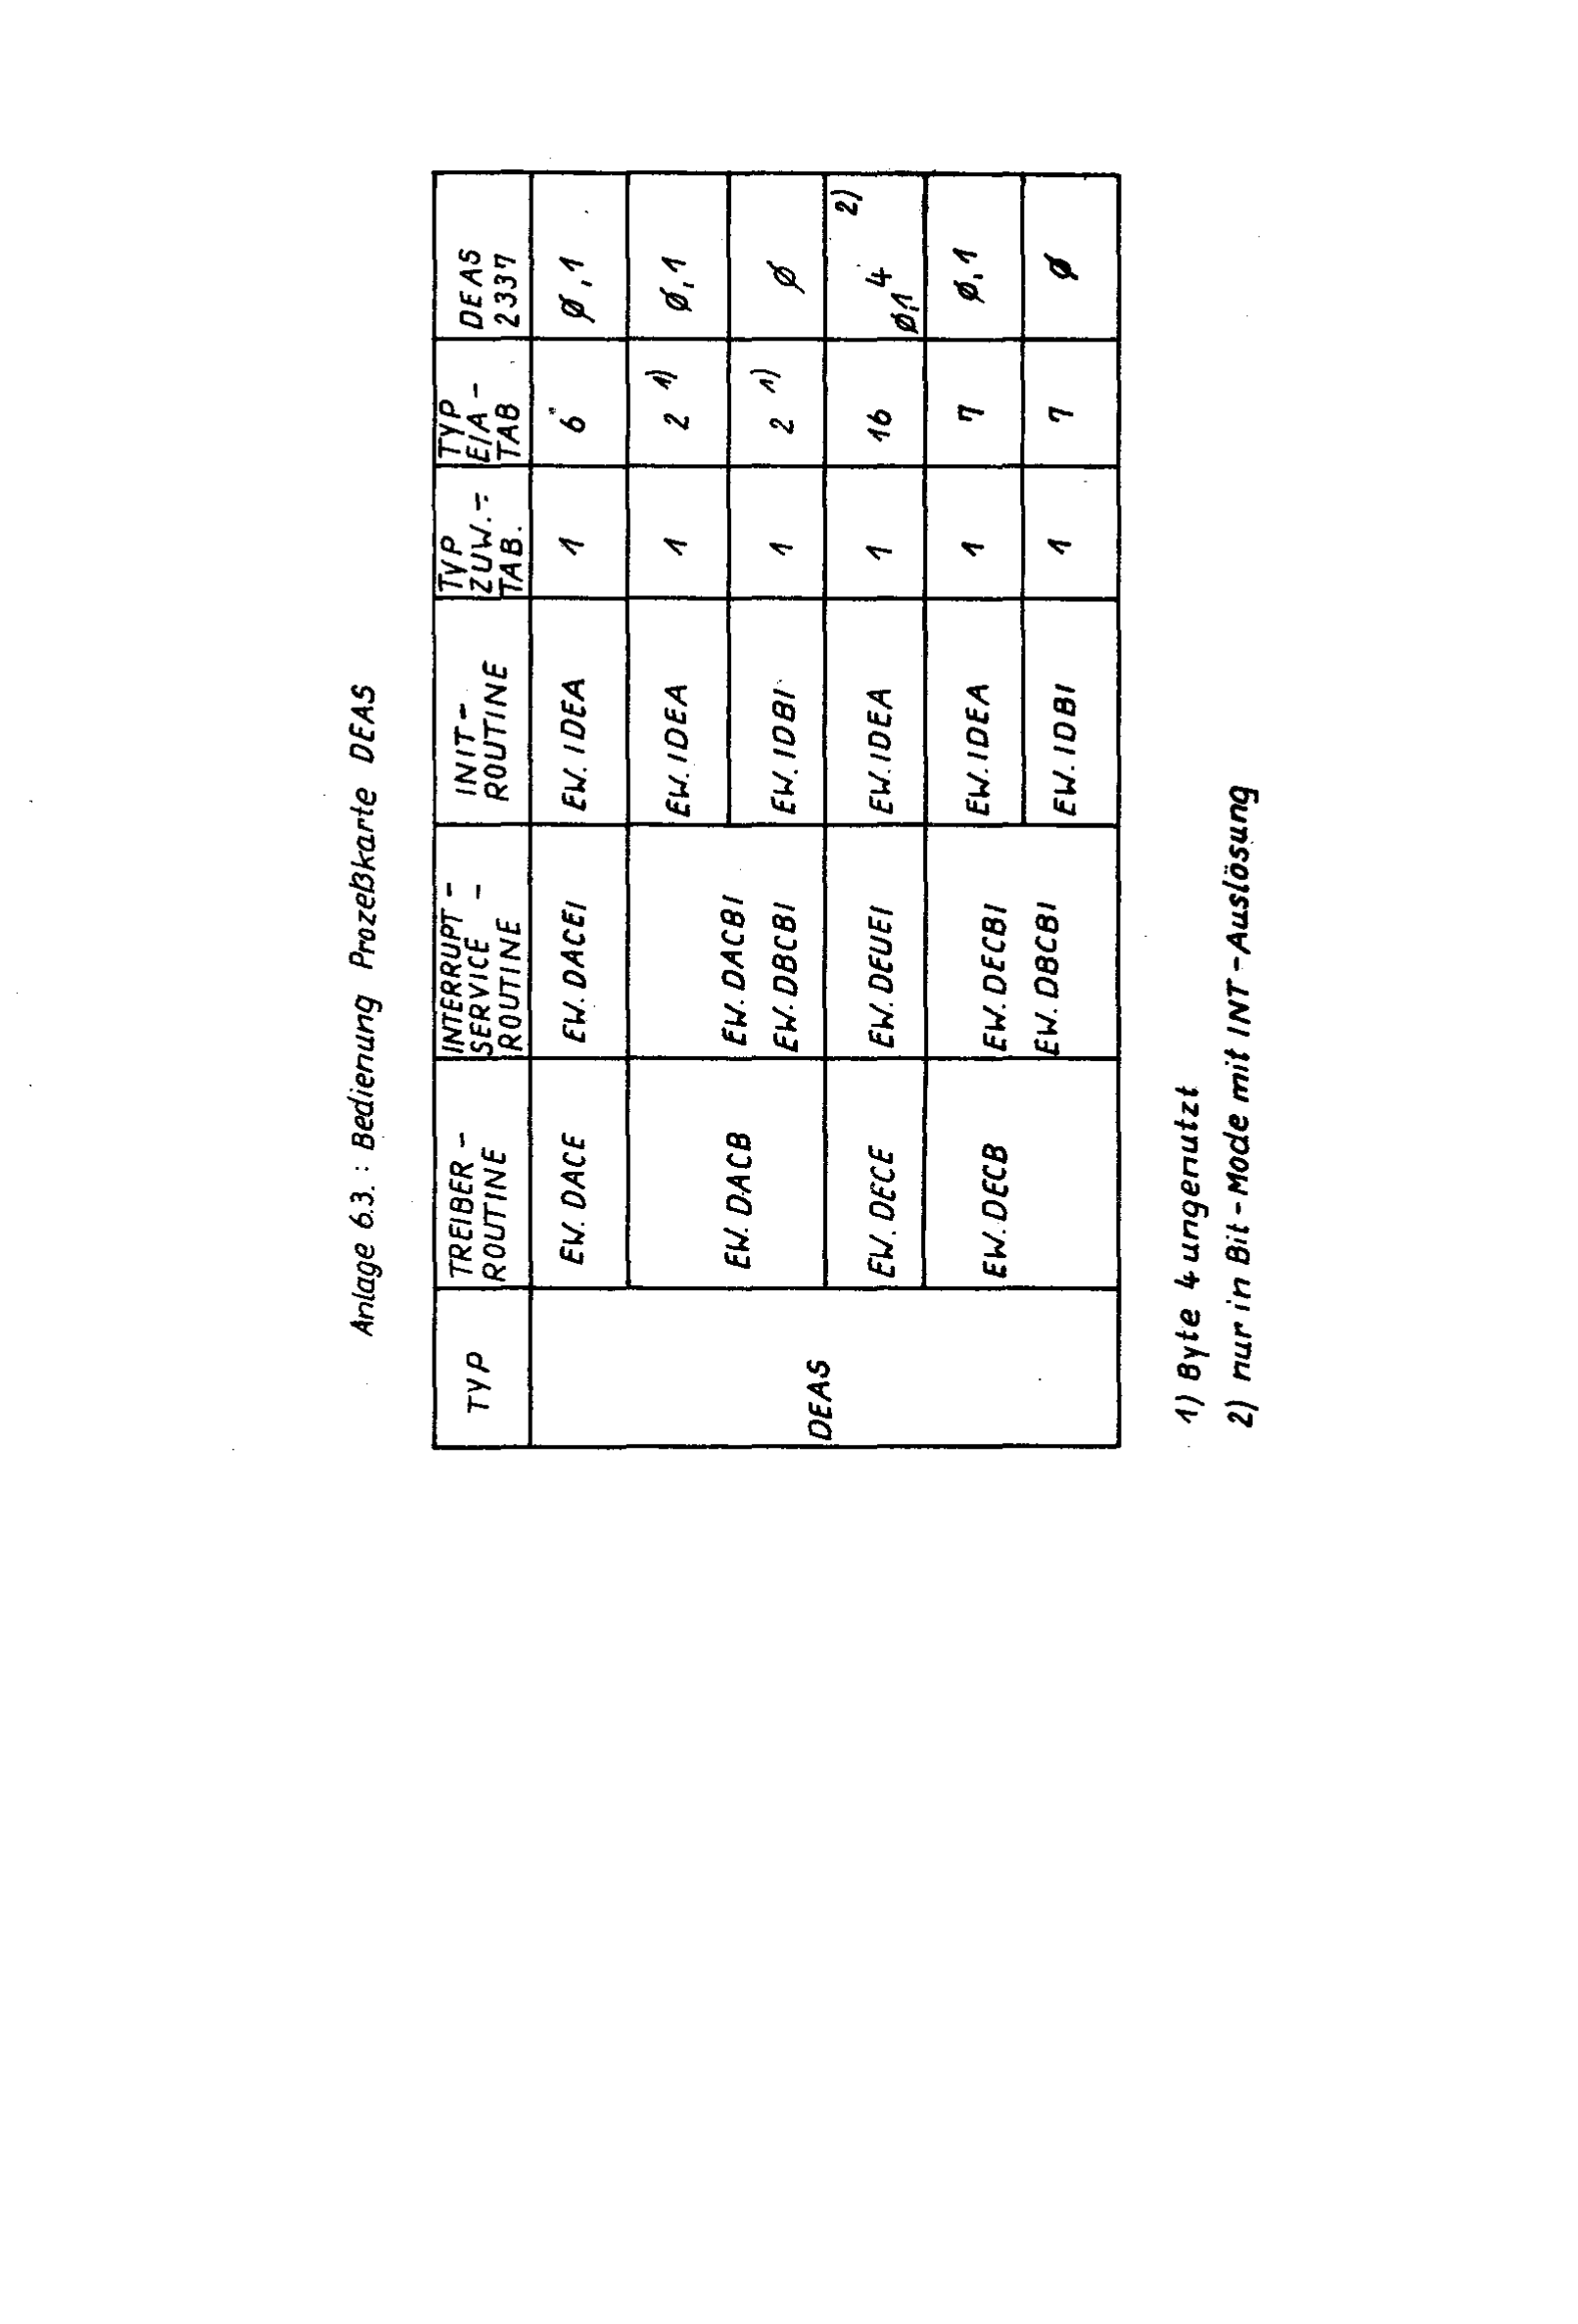 Anlage 6.3. : Bedienung Prozeßkarte DEAS
TYP TREIBER- ROUTINE INTERRUPT- SERVICE- ROUTINE INIT- ROUTINE TYP ZUW.- TAB. TYP E/A- TAB DEAS 2337
DEAS
EW.DACE EW.DACEI EW.IDEA 1 6 Ø,1
EW.DACB EW.DACBI EW.IDEA 1 2 1) Ø,1
EW.DBCBI EW.IDBI 1 2 1) Ø
EW.DECE EW.DEUEI EW.IDEA 1 16 4 2)
Ø,1
EW.DECB EW.DECBI EW.IDEA 1 7 Ø,1
EW.DBCBI EW.IDBI 1 7 Ø
1) Byte 4 ungenutzt
2) nur in Bit-Mode mit INT-Auslösung